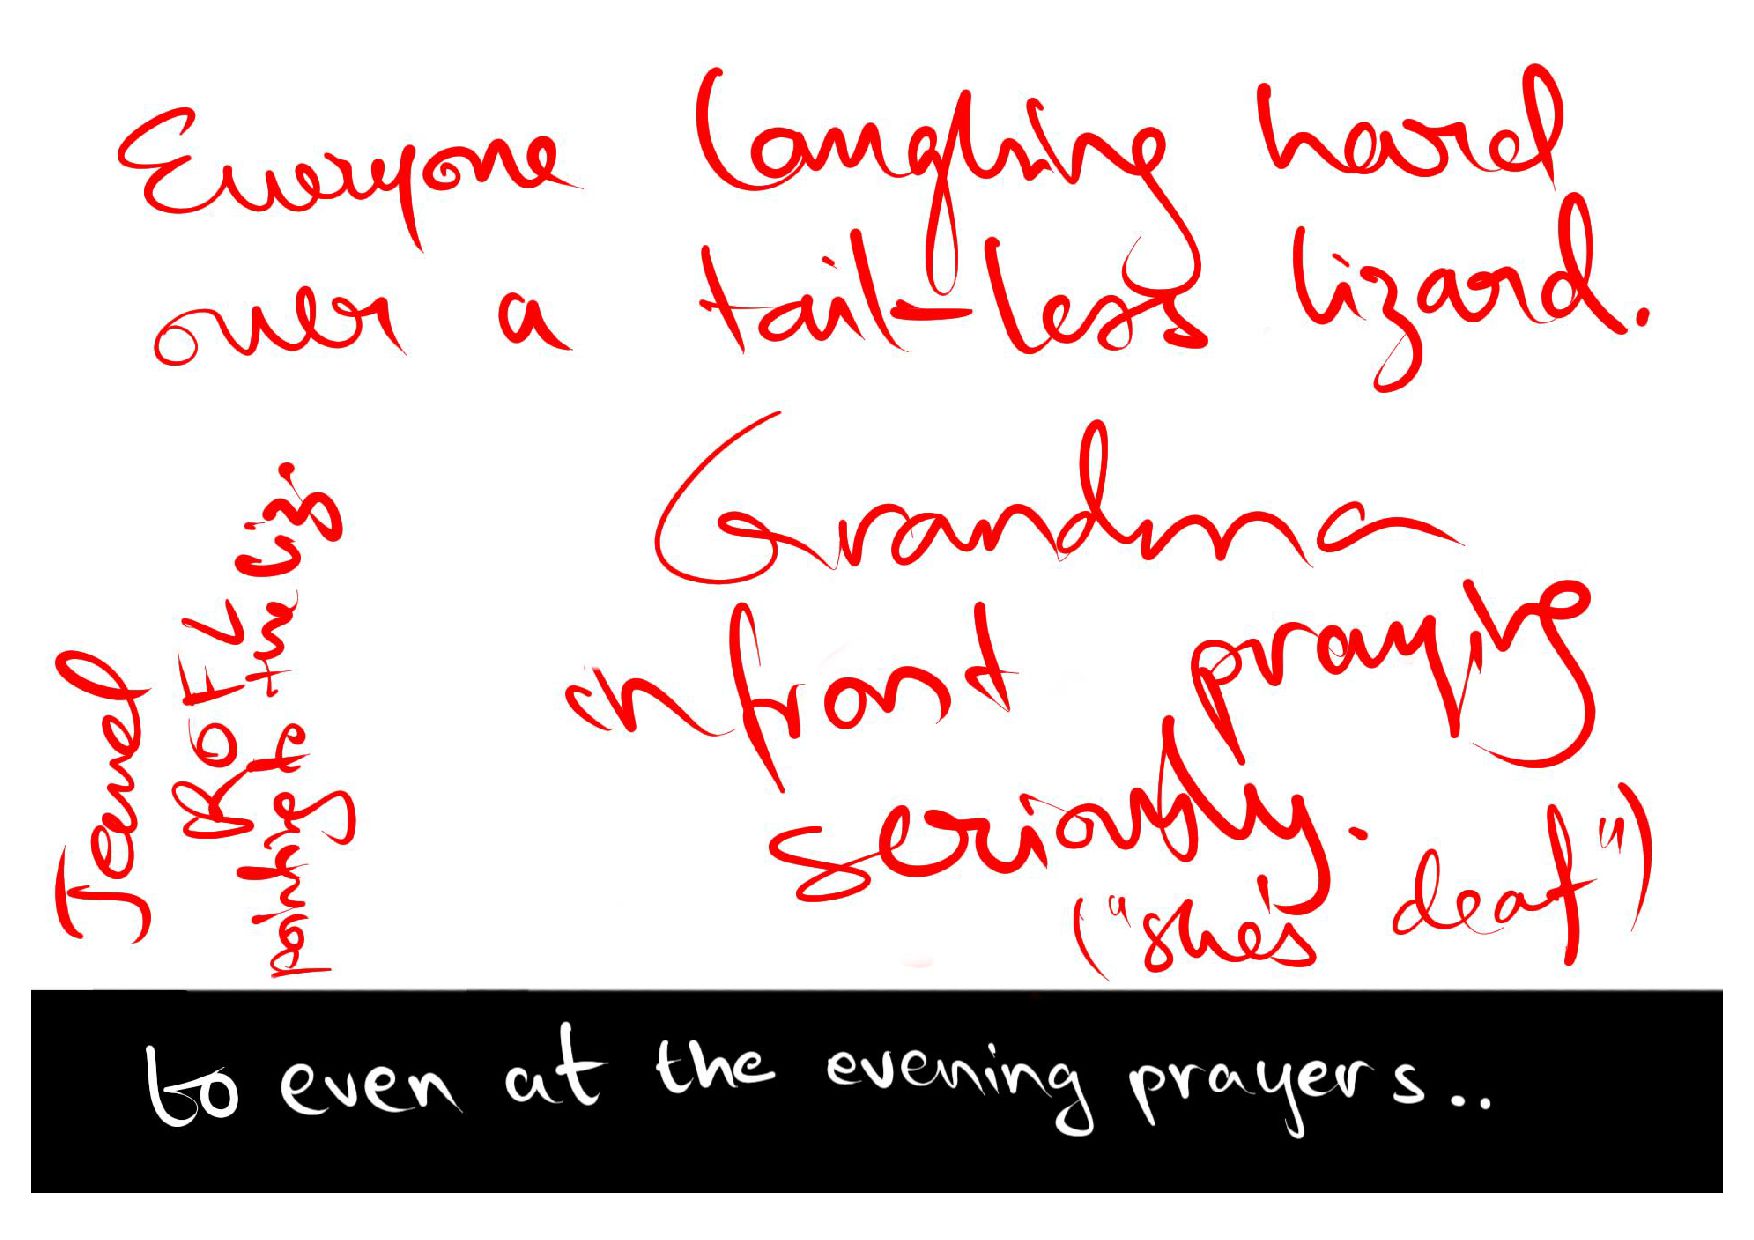 Everyone laughing hard
over a tail-less lizard.
Grandma
in front praying
seriously.
("she's deaf")
ROFL
pointing to the liz.
to even at the evening prayers..